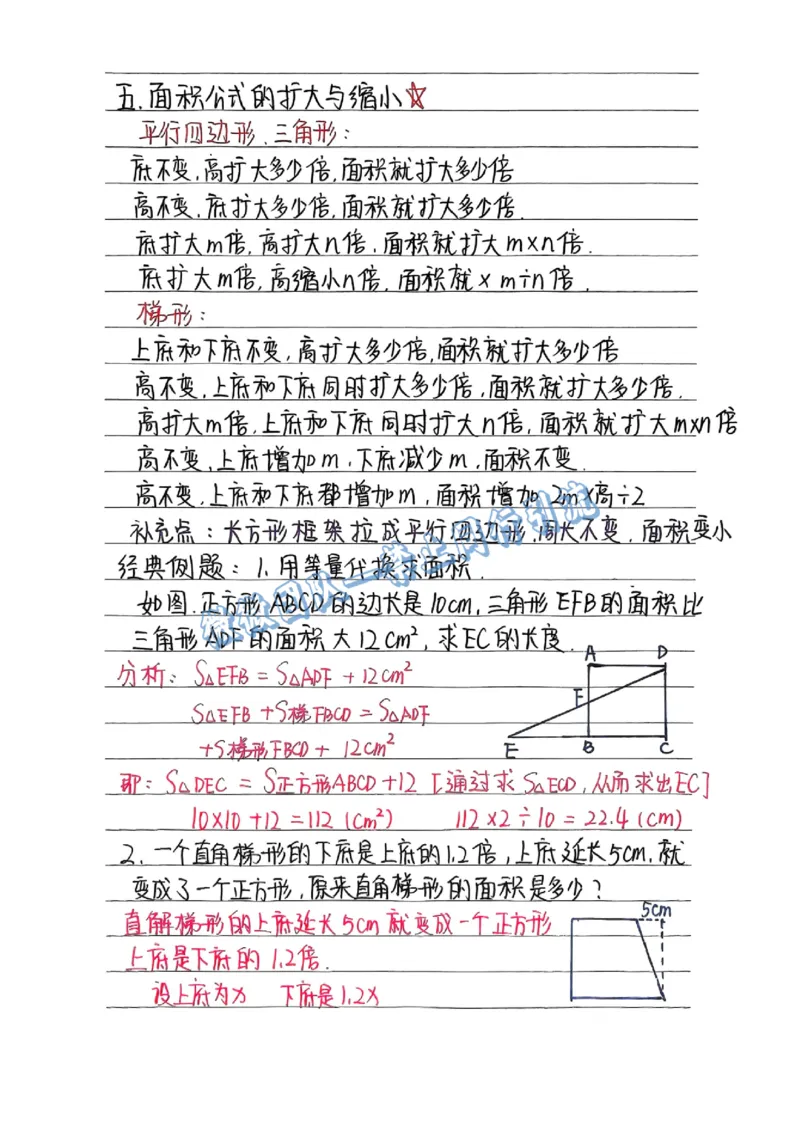 五.面积公式的扩大与缩小☆
平行四边形.三角形:
底不变,高扩大多少倍,面积就扩大多少倍
高不变.底扩大多少倍,面积就扩大多少倍.
底扩大m倍,高扩大n倍.面积就扩大m×n倍.
底扩大m倍,高缩小n倍.面积就×m÷n倍.
梯形:
上底和下底不变,高扩大多少倍,面积就扩大多少倍
高不变,上底和下底同时扩大多少倍,面积就扩大多少倍.
高扩大m倍.上底和下底同时扩大n倍,面积就扩大m×n倍
高不变,上底增加m.下底减少m,面积不变.
高不变.上底和下底都增加m,面积增加2m×高÷2
补充点:长方形框架拉成平行四边形,周长不变.面积变小
经典例题:1.用等量代换求面积.
如图.正方形ABCD的边长是10cm,三角形EFB的面积比
三角形ADF的面积大12cm²,求EC的长度.
A D
分析:S△EFB=S△ADF+12cm²
F
S△EFB+S梯FBCD=S△ADF
+S梯形FBCD+12cm²
E B C
即:S△DEC=S正方形ABCD+12[通过求S△ECD,从而求出EC]
10×10+12=112(cm²) 112×2÷10=22.4(cm)
2.一个直角梯形的下底是上底的1.2倍,上底延长5cm.就
变成了一个正方形,原来直角梯形的面积是多少?
5cm
直解梯形的上底延长5cm就变成一个正方形
上底是下底的1.2倍.
设上底为x 下底是1.2x